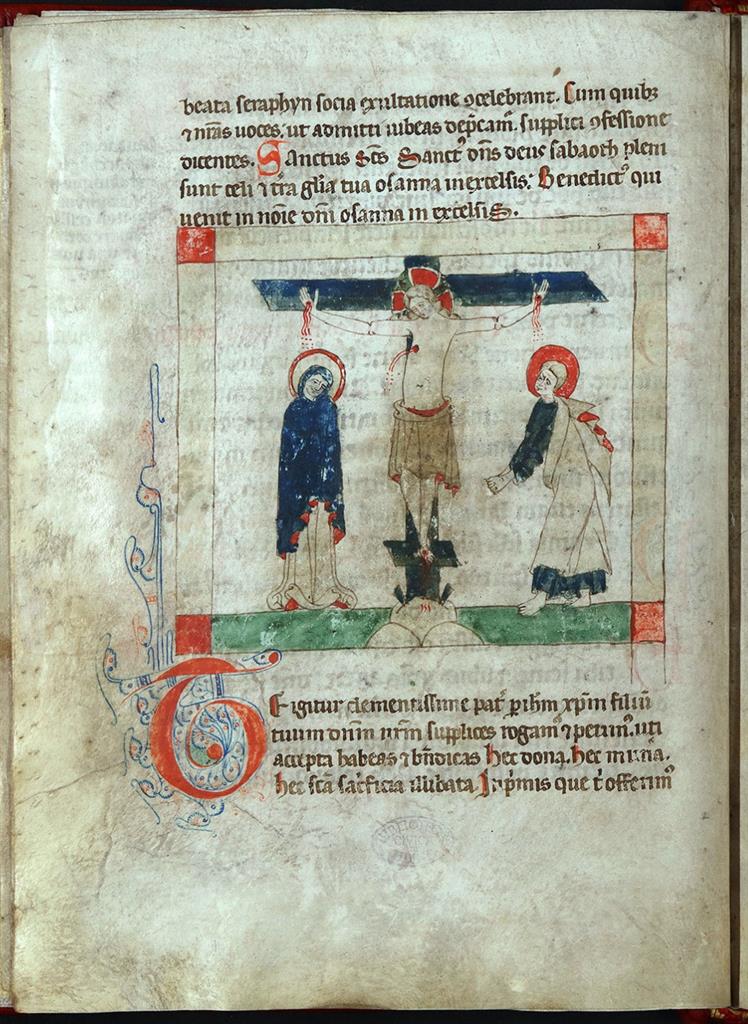 beata seraphyn socia exultatione ꝯcelebrant. Cum quibꝫ
⁊ nr̄as uoces. ut admitti iubeas dep̄cam̄. supplici ꝯfessione
dicentes. Sanctus Sc̄s Sanct᷒ dn̄s deus sabaoth pleni
sunt celi ⁊ t̄ra glīa tua osanna in excelsis. Benedict᷒ qui
uenit in noīe dn̄i osanna in excelsis.
Te igitur clementissime pat̄ p ih̄m xp̄m filiū
tuum dn̄m nr̄m supplices rogam᷒ ⁊ petim᷒. uti
accepta habeas ⁊ bn̄dicas hec dona. hec mun̄a.
hec sc̄a sac̄ficia illibata. Inp̄mis que t̄ offerim᷒